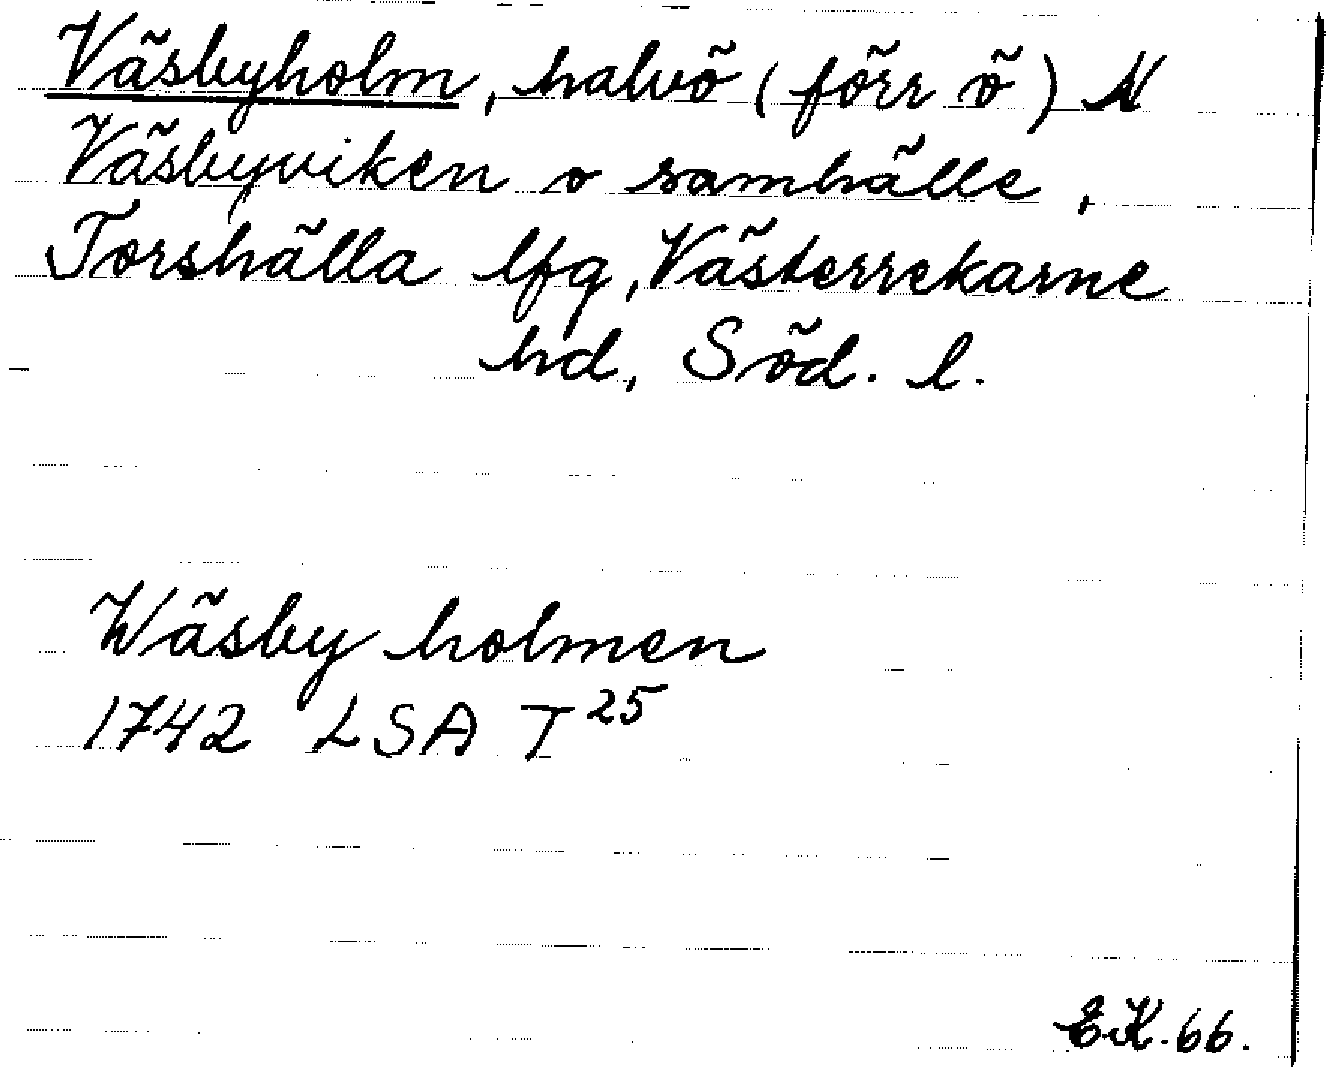 Väsbyholm, halvö (förr ö) N
Väsbyviken o samhälle,
Torshälla lfg, Västerrekarne
hd, Söd. l.
Wäsby holmen
1742 LSA T 25
EK. 66.